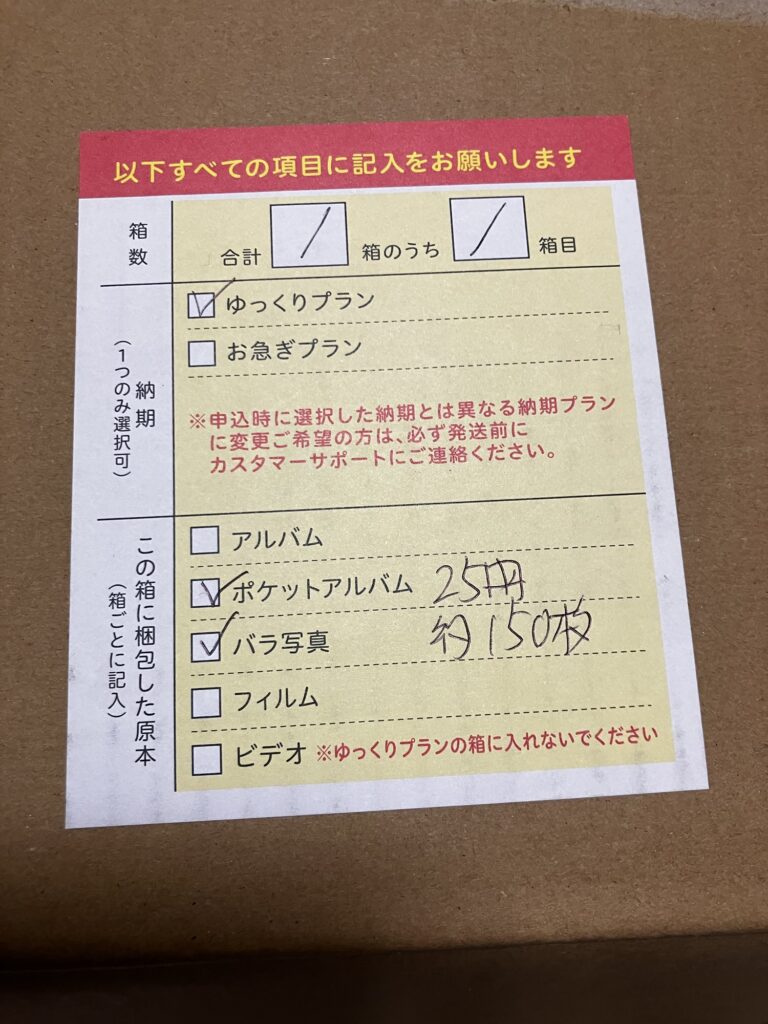 以下すべての項目に記入をお願いします
箱数
合計 / 箱のうち / 箱目
納期
(1つのみ選択可)
ゆっくりプラン
お急ぎプラン
※申込時に選択した納期とは異なる納期プラン
に変更ご希望の方は、必ず発送前に
カスタマーサポートにご連絡ください。
この箱に梱包した原本
(箱ごとに記入)
アルバム
ポケットアルバム 25冊
バラ写真 約150枚
フィルム
ビデオ ※ゆっくりプランの箱に入れないでください